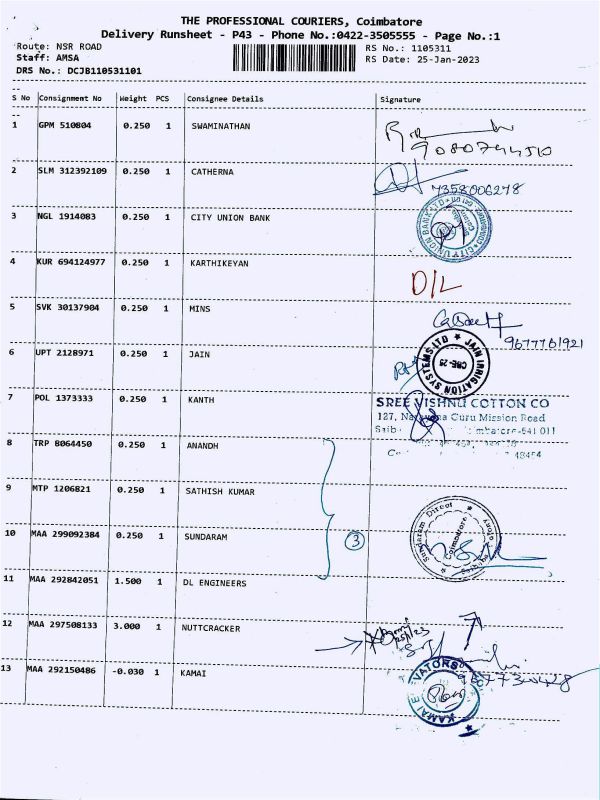 THE PROFESSIONAL COURIERS, Coimbatore
Delivery Runsheet - P43 - Phone No.:0422-3505555 - Page No.:1
Route: NSR ROAD RS No.: 1105311
Staff: AMSA RS Date: 25-Jan-2023
DRS No.: DCJB110531101
S No Consignment No Weight PCS Consignee Details Signature
1 GPM 510804 0.250 1 SWAMINATHAN
2 SLM 312392109 0.250 1 CATHERNA
7358006278
3 NGL 1914083 0.250 1 CITY UNION BANK
CITY UNION BANK LTD
4 KUR 694124977 0.250 1 KARTHIKEYAN D/L
5 SVK 30137904 0.250 1 MINS
9677761921
6 UPT 2128971 0.250 1 JAIN
JAIN IRRIGATION SYSTEMS LTD CBE-25
7 POL 1373333 0.250 1 KANTH
SREE VISHNU COTTON CO
127, Guru Mission Road
8 TRP 8064450 0.250 1 ANANDH
9 MTP 1206821 0.250 1 SATHISH KUMAR
10 MAA 299092384 0.250 1 SUNDARAM
3
Sundaram Direct Coimbatore
11 MAA 292842051 1.500 1 DL ENGINEERS
12 MAA 297508133 3.000 1 NUTTCRACKER
25/1/23
13 MAA 292150486 -0.030 1 KAMAI